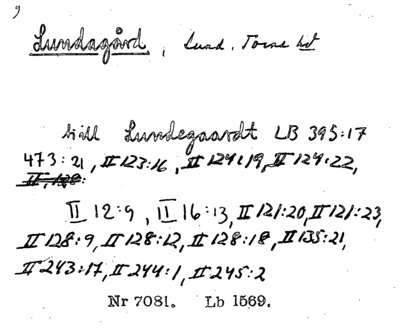 Lundagård, Lund. Torna hd
till Lundegaardt LB 395:17
473:21, II 123:16, II 124:19, II 124:22,
II 12:9, II 16:13, II 121:20, II 121:23,
II 128:9, II 128:12, II 128:18, II 135:21,
II 243:17, II 244:1, II 245:2
Nr 7081. Lb 1569.